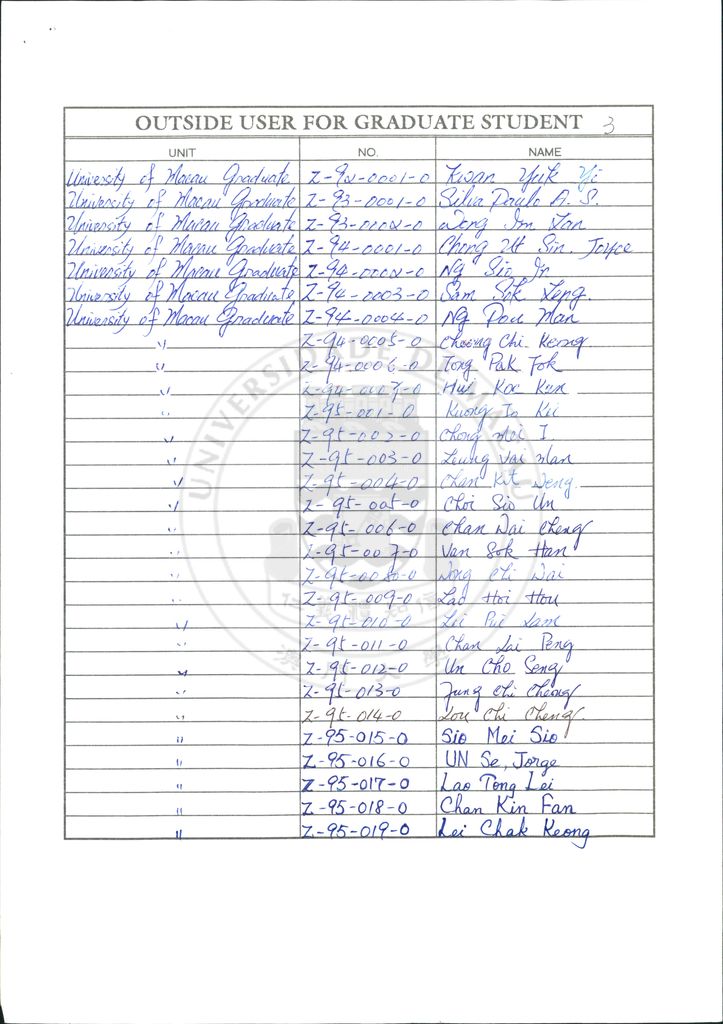 OUTSIDE USER FOR GRADUATE STUDENT 3
UNIT NO. NAME
University of Macau Graduate Z-92-0001-0 Kwan Yuk Yi
University of Macau Graduate Z-93-0001-0 Silva Paulo A. S.
University of Macau Graduate Z-93-0002-0 Wong Im Lan
University of Macau Graduate Z-94-0001-0 Chong Ut Sin. Joyce
University of Macau Graduate Z-94-0002-0 Ng Sio In
University of Macau Graduate Z-94-0003-0 Sam Sok Leng.
University of Macau Graduate Z-94-0004-0 Ng Pou Man
" Z-94-0005-0 Choong Chi Keong
" Z-94-0006-0 Tong Pak Fok
" Z-94-0007-0 Hui Koc Kun
" Z-95-001-0 Kuong Io Kei
" Z-95-002-0 Chong Mei I
" Z-95-003-0 Leung Vai Man
" Z-95-004-0 Chan Kit Weng.
" Z-95-005-0 Choi Sio Un
" Z-95-006-0 Chan Wai Cheng
" Z-95-007-0 Van Sok Han
" Z-95-0080-0 Wong Chi Wai
" Z-95-009-0 Lao Hoi Hou
" Z-95-010-0 Lei Pui Lam
" Z-95-011-0 Chan Lai Peng
" Z-95-012-0 Un Cho Seng
" Z-95-013-0 Fung Chi Cheong
" Z-95-014-0 Lou Chi Cheng.
" Z-95-015-0 Sio Mei Sio
" Z-95-016-0 UN Se, Jorge
" Z-95-017-0 Lao Tong Lei
" Z-95-018-0 Chan Kin Fan
" Z-95-019-0 Lei Chak Keong
UNIVERSIDADE DE MACAU
仁義禮知信
澳門大學